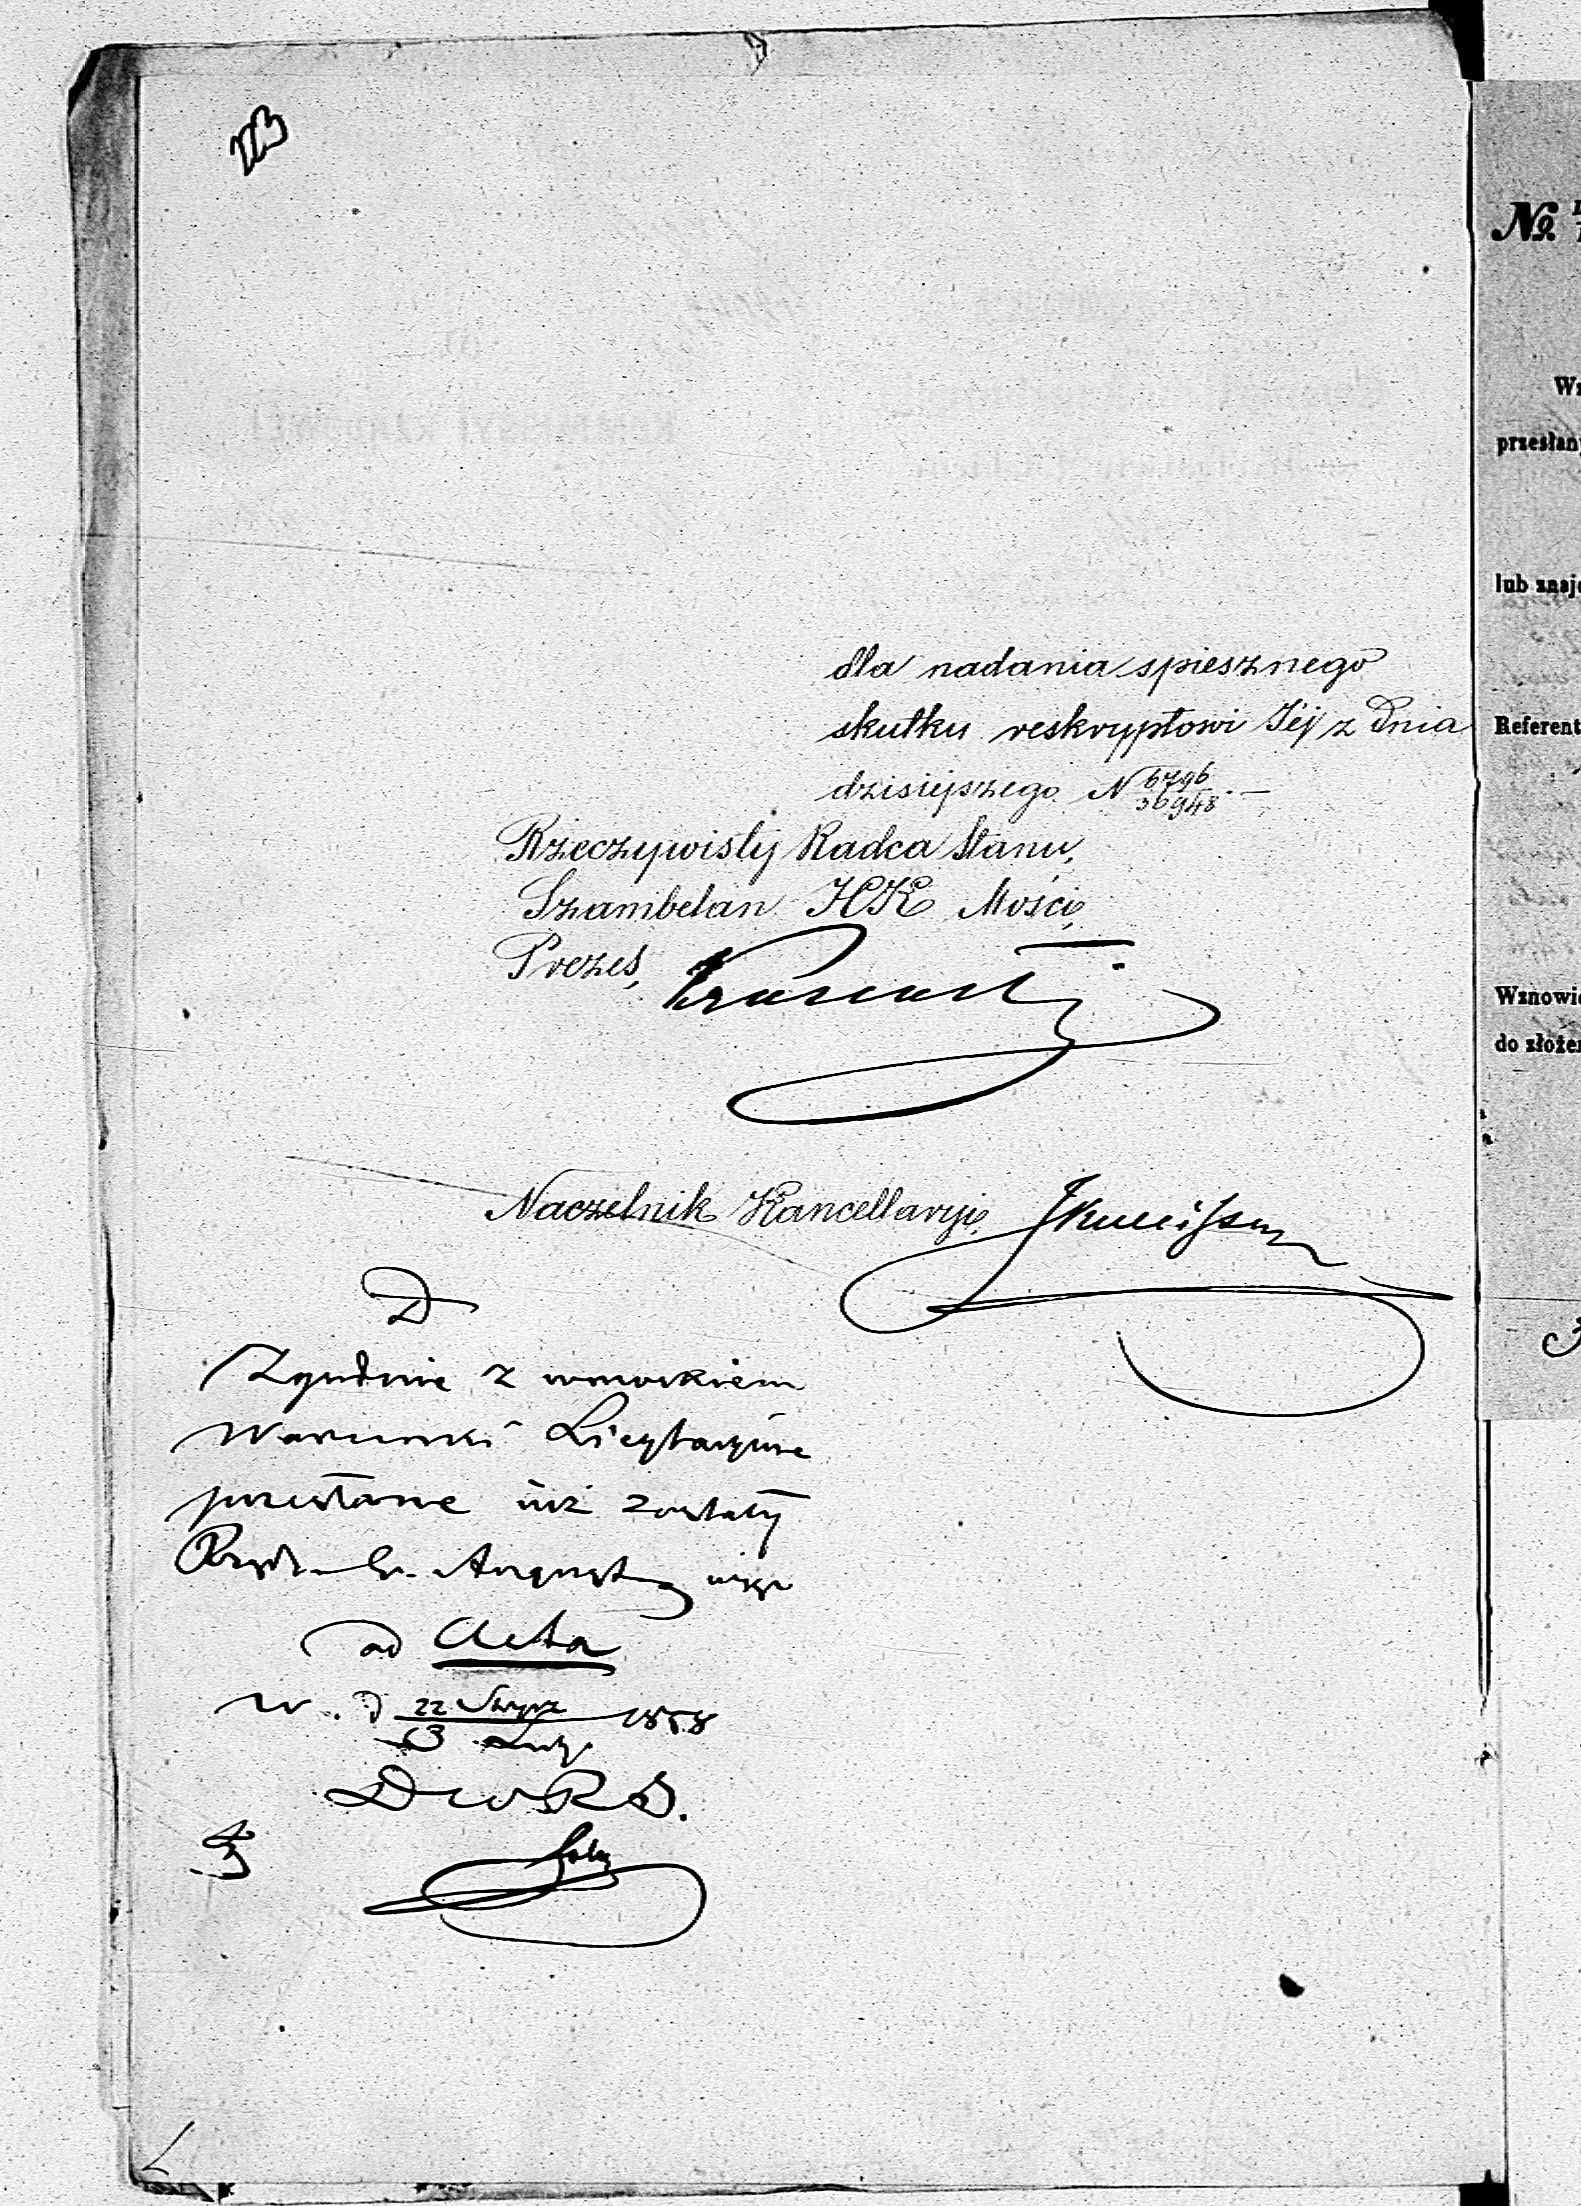 113
dla nadania spiesznego
skutku reskryptowi Jéj z Dnia
dzisiejszego N 6796/36948.—
Rzeczywisty Radca Stanu,
Szambelan JCK Mości,
Prezes,
Naczelnik Kancellaryi,
D
Zgodnie z wnioskiem
Warunki Licytacyjne
przesłane już zostały
Rządo. Gu. August. więc
ad Acta
W. d 22 Stycz / 3 Lut. 1858
D W R S.
№
Wz
przesłany
lub znajd
Referent
Wznowie
do złożen